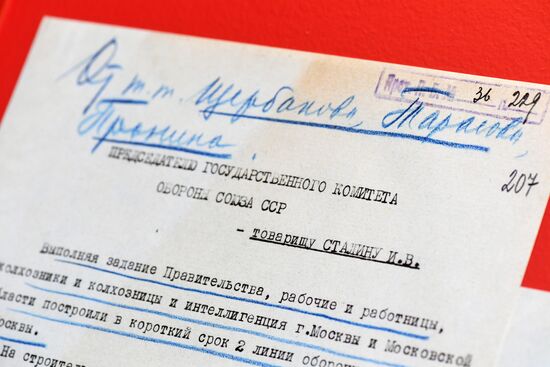 От т.т. Щербакова, Тарасова,
Пронина.
36 229
207
ПРЕДСЕДАТЕЛЮ ГОСУДАРСТВЕННОГО КОМИТЕТА
ОБОРОНЫ СОЮЗА ССР
- товарищу СТАЛИНУ И.В.
Выполняя задание Правительства, рабочие и работницы,
колхозники и колхозницы и интеллигенция г.Москвы и Московской
ласти построили в короткий срок 2 линии оборон
осквы.
На строител